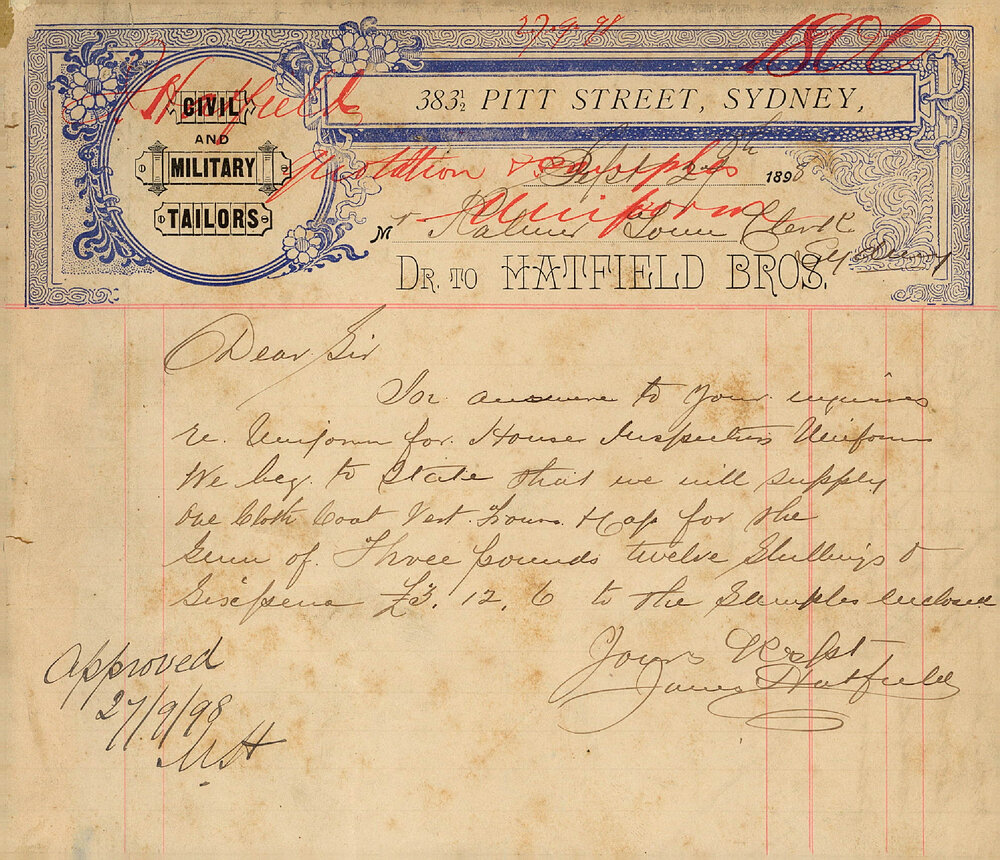 27.9.98
1800
J. Hatfield
CIVIL
AND
MILITARY
TAILORS
383½ PITT STREET, SYDNEY,
quotation & samples
Sept 27th 1898
Uniform
Mr Palmer Town Clerk
Sydney
DR. TO HATFIELD BROS.
Dear Sir
In answere to your inquiries
re. Uniform for House Inspectors Uniform
We beg. to State that we will supply
One Cloth Coat Vest. Trours. & Cap for the
Sum of. Three pounds twelve Shillings &
Sixpence £3. 12. 6 to the Samples enclosed
Yours Respt
James Hatfield
Approved
27/9/98